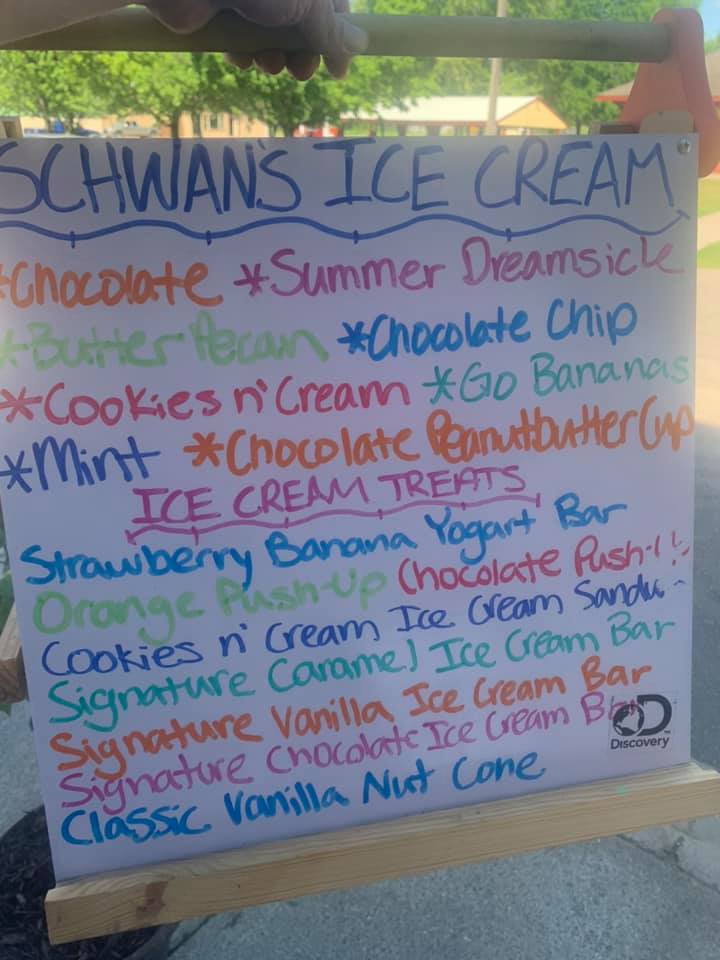 SCHWAN'S ICE CREAM
*Chocolate *Summer Dreamsicle
*Butter Pecan *Chocolate Chip
*Cookies n' Cream *Go Bananas
*Mint *Chocolate Peanutbutter Cup
ICE CREAM TREATS
Strawberry Banana Yogart Bar
Orange Push-Up Chocolate Push-
Cookies n' Cream Ice Cream
Signature Caramel Ice Cream Bar
Signature Vanilla Ice Cream Bar
Signature Chocolate Ice Cream Bar
Classic Vanilla Nut Cone
Discovery